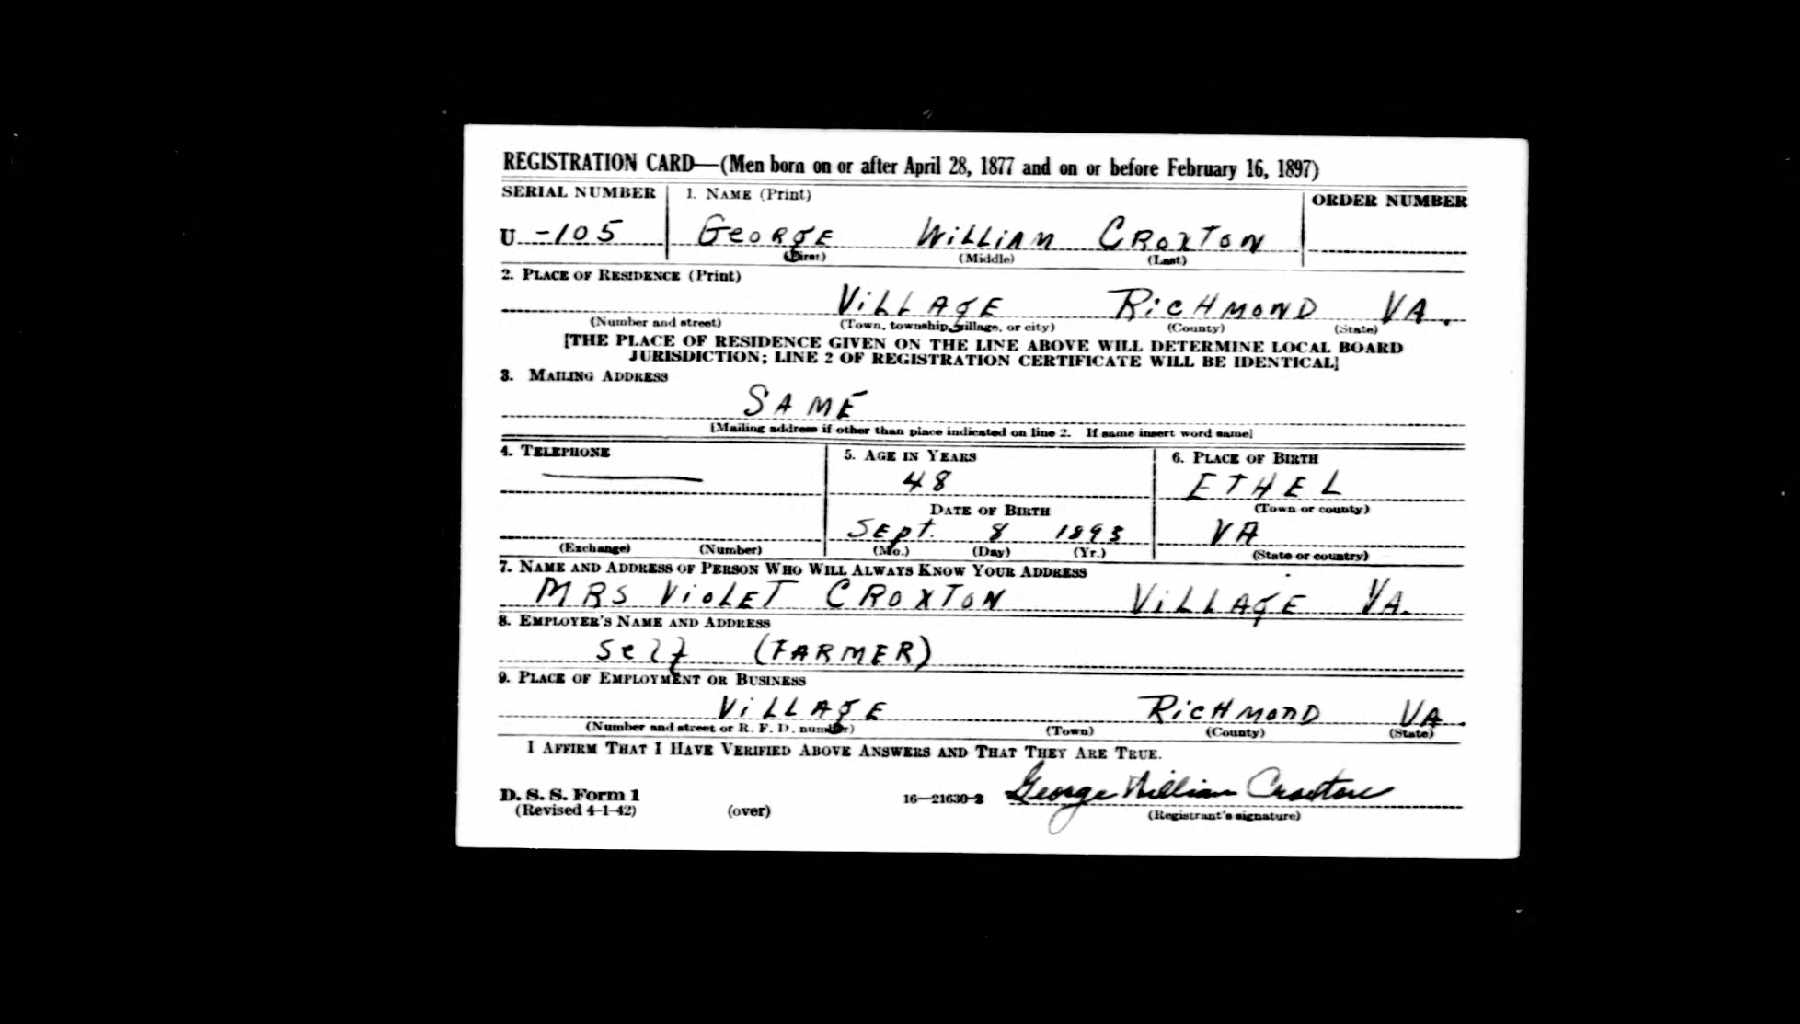 REGISTRATION CARD—(Men born on or after April 28, 1877 and on or before February 16, 1897)
SERIAL NUMBER 1. NAME (Print) ORDER NUMBER
U -105 GEORGE WILLIAM CROXTON
(First) (Middle) (Last)
2. PLACE OF RESIDENCE (Print)
VILLAGE RICHMOND VA.
(Number and street) (Town, township, village, or city) (County) (State)
[THE PLACE OF RESIDENCE GIVEN ON THE LINE ABOVE WILL DETERMINE LOCAL BOARD
JURISDICTION; LINE 2 OF REGISTRATION CERTIFICATE WILL BE IDENTICAL]
3. MAILING ADDRESS
SAME
[Mailing address if other than place indicated on line 2. If same insert word same]
4. TELEPHONE 5. AGE IN YEARS 6. PLACE OF BIRTH
48 ETHEL
DATE OF BIRTH (Town or county)
SEpt. 8 1893 VA
(Exchange) (Number) (Mo.) (Day) (Yr.) (State or country)
7. NAME AND ADDRESS OF PERSON WHO WILL ALWAYS KNOW YOUR ADDRESS
MRS VIOLET CROXTON VILLAGE VA.
8. EMPLOYER'S NAME AND ADDRESS
Self (FARMER)
9. PLACE OF EMPLOYMENT OR BUSINESS
VILLAGE RICHMOND VA.
(Number and street or R. F. D. number) (Town) (County) (State)
I AFFIRM THAT I HAVE VERIFIED ABOVE ANSWERS AND THAT THEY ARE TRUE.
D. S. S. Form 1 George William Croxton
(Revised 4-1-42) (over) 16—21630-2 (Registrant's signature)